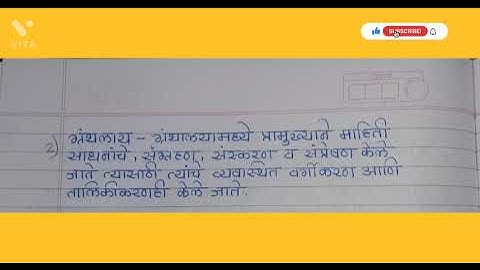 VITA
SUBSCRIBED
2) ग्रंथलाय - ग्रंथालयामध्ये प्रामुख्याने माहिती
साधनांचे, संग्रहण, संस्करण व संप्रेषण केले
जाते त्यासाठी त्यांचे व्यवास्थित वर्गीकरण आणि
तालिकीकरणही केले जाते.